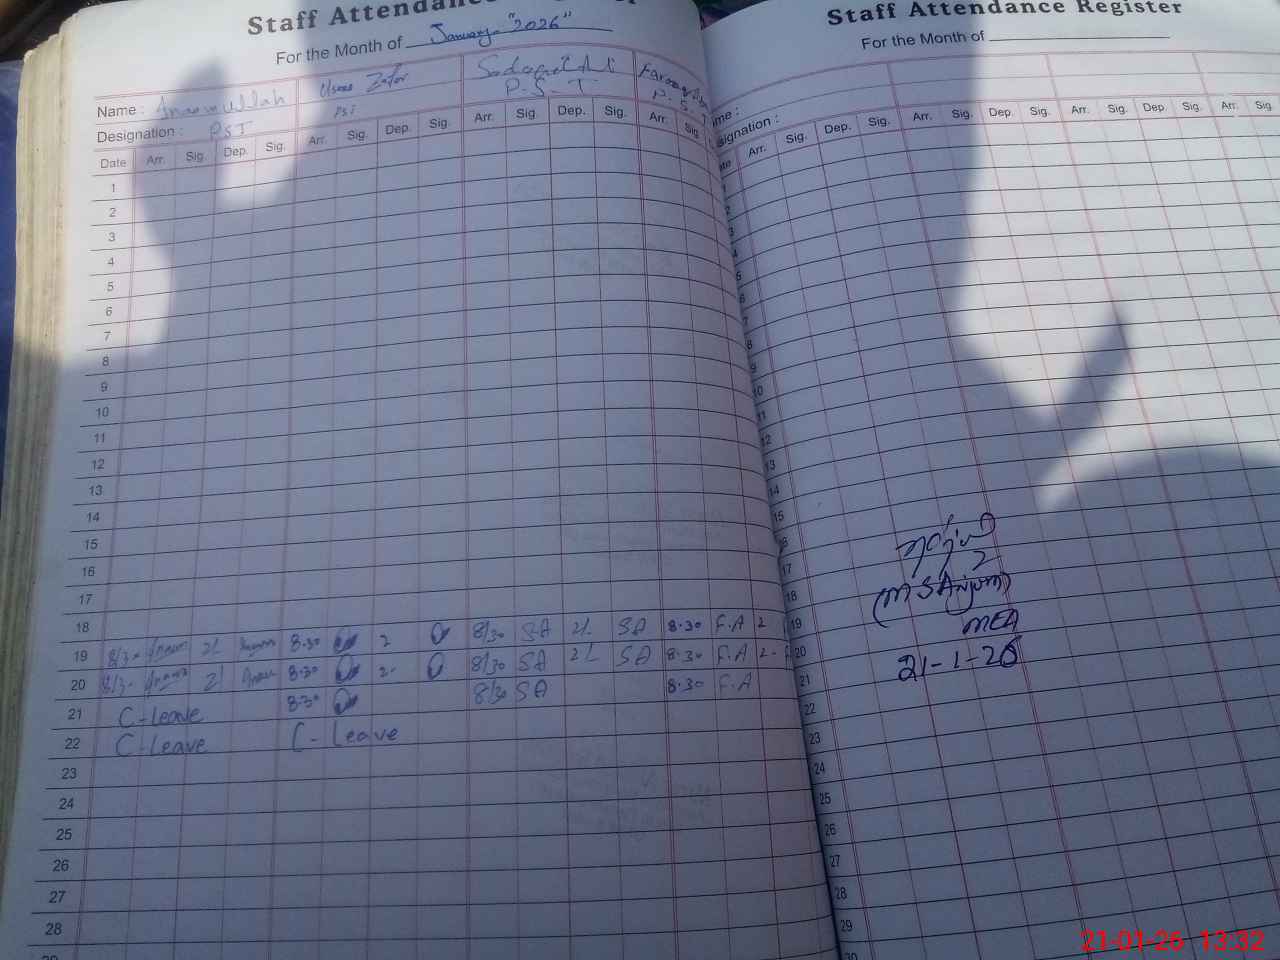 Staff Attendanc
For the Month of January "2026"
Name : Inaam Ullah Usama Zafar Sadaqat Ali Farooq
Designation : PST PST P.S.T P.S.T
Date Arr. Sig. Dep. Sig. Arr. Sig. Dep. Sig. Arr. Sig. Dep. Sig. Arr. Sig.
1
2
3
4
5
6
7
8
9
10
11
12
13
14
15
16
17
18
19 8/30 Inaam 2/ Inaam 8.30 2 8/30 SA 2/ SA 8.30 F.A 2
20 8/30 Inaam 2/ Inaam 8.30 2 8/30 SA 2/ SA 8.30 F.A 2
21 C-Leave 8.30 8/30 SA 8.30 F.A
22 C-Leave C-Leave
23
24
25
26
27
28
29
Staff Attendance Register
For the Month of
me :
signation :
ate Arr. Sig. Dep. Sig. Arr. Sig. Dep. Sig. Arr. Sig. Dep. Sig. Arr. Sig.
1
2
3
4
5
6
7
8
9
10
11
12
13
14
15
16
17
18
19
20
21
22
23
24
25
26
27
28
29
30
(M S Anjum)
MEA
21-1-26
21-01-26 13:32